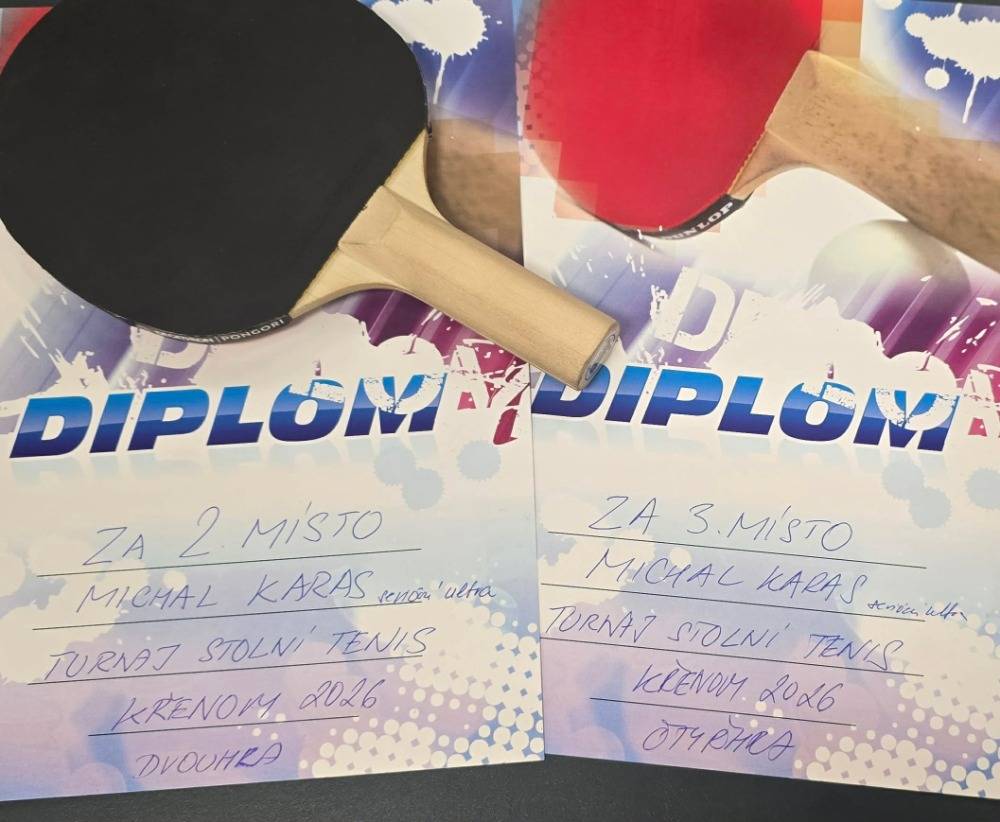 PONGORI
DIPLOM
ZA 2. MÍSTO
MICHAL KARAS senioři ultra
TURNAJ STOLNÍ TENIS
KŘENOVY 2026
DVOUHRA
DUNLOP
DIPLOM
ZA 3. MÍSTO
MICHAL KARAS senioři ultra
TURNAJ STOLNÍ TENIS
KŘENOVY 2026
ČTYŘHRA